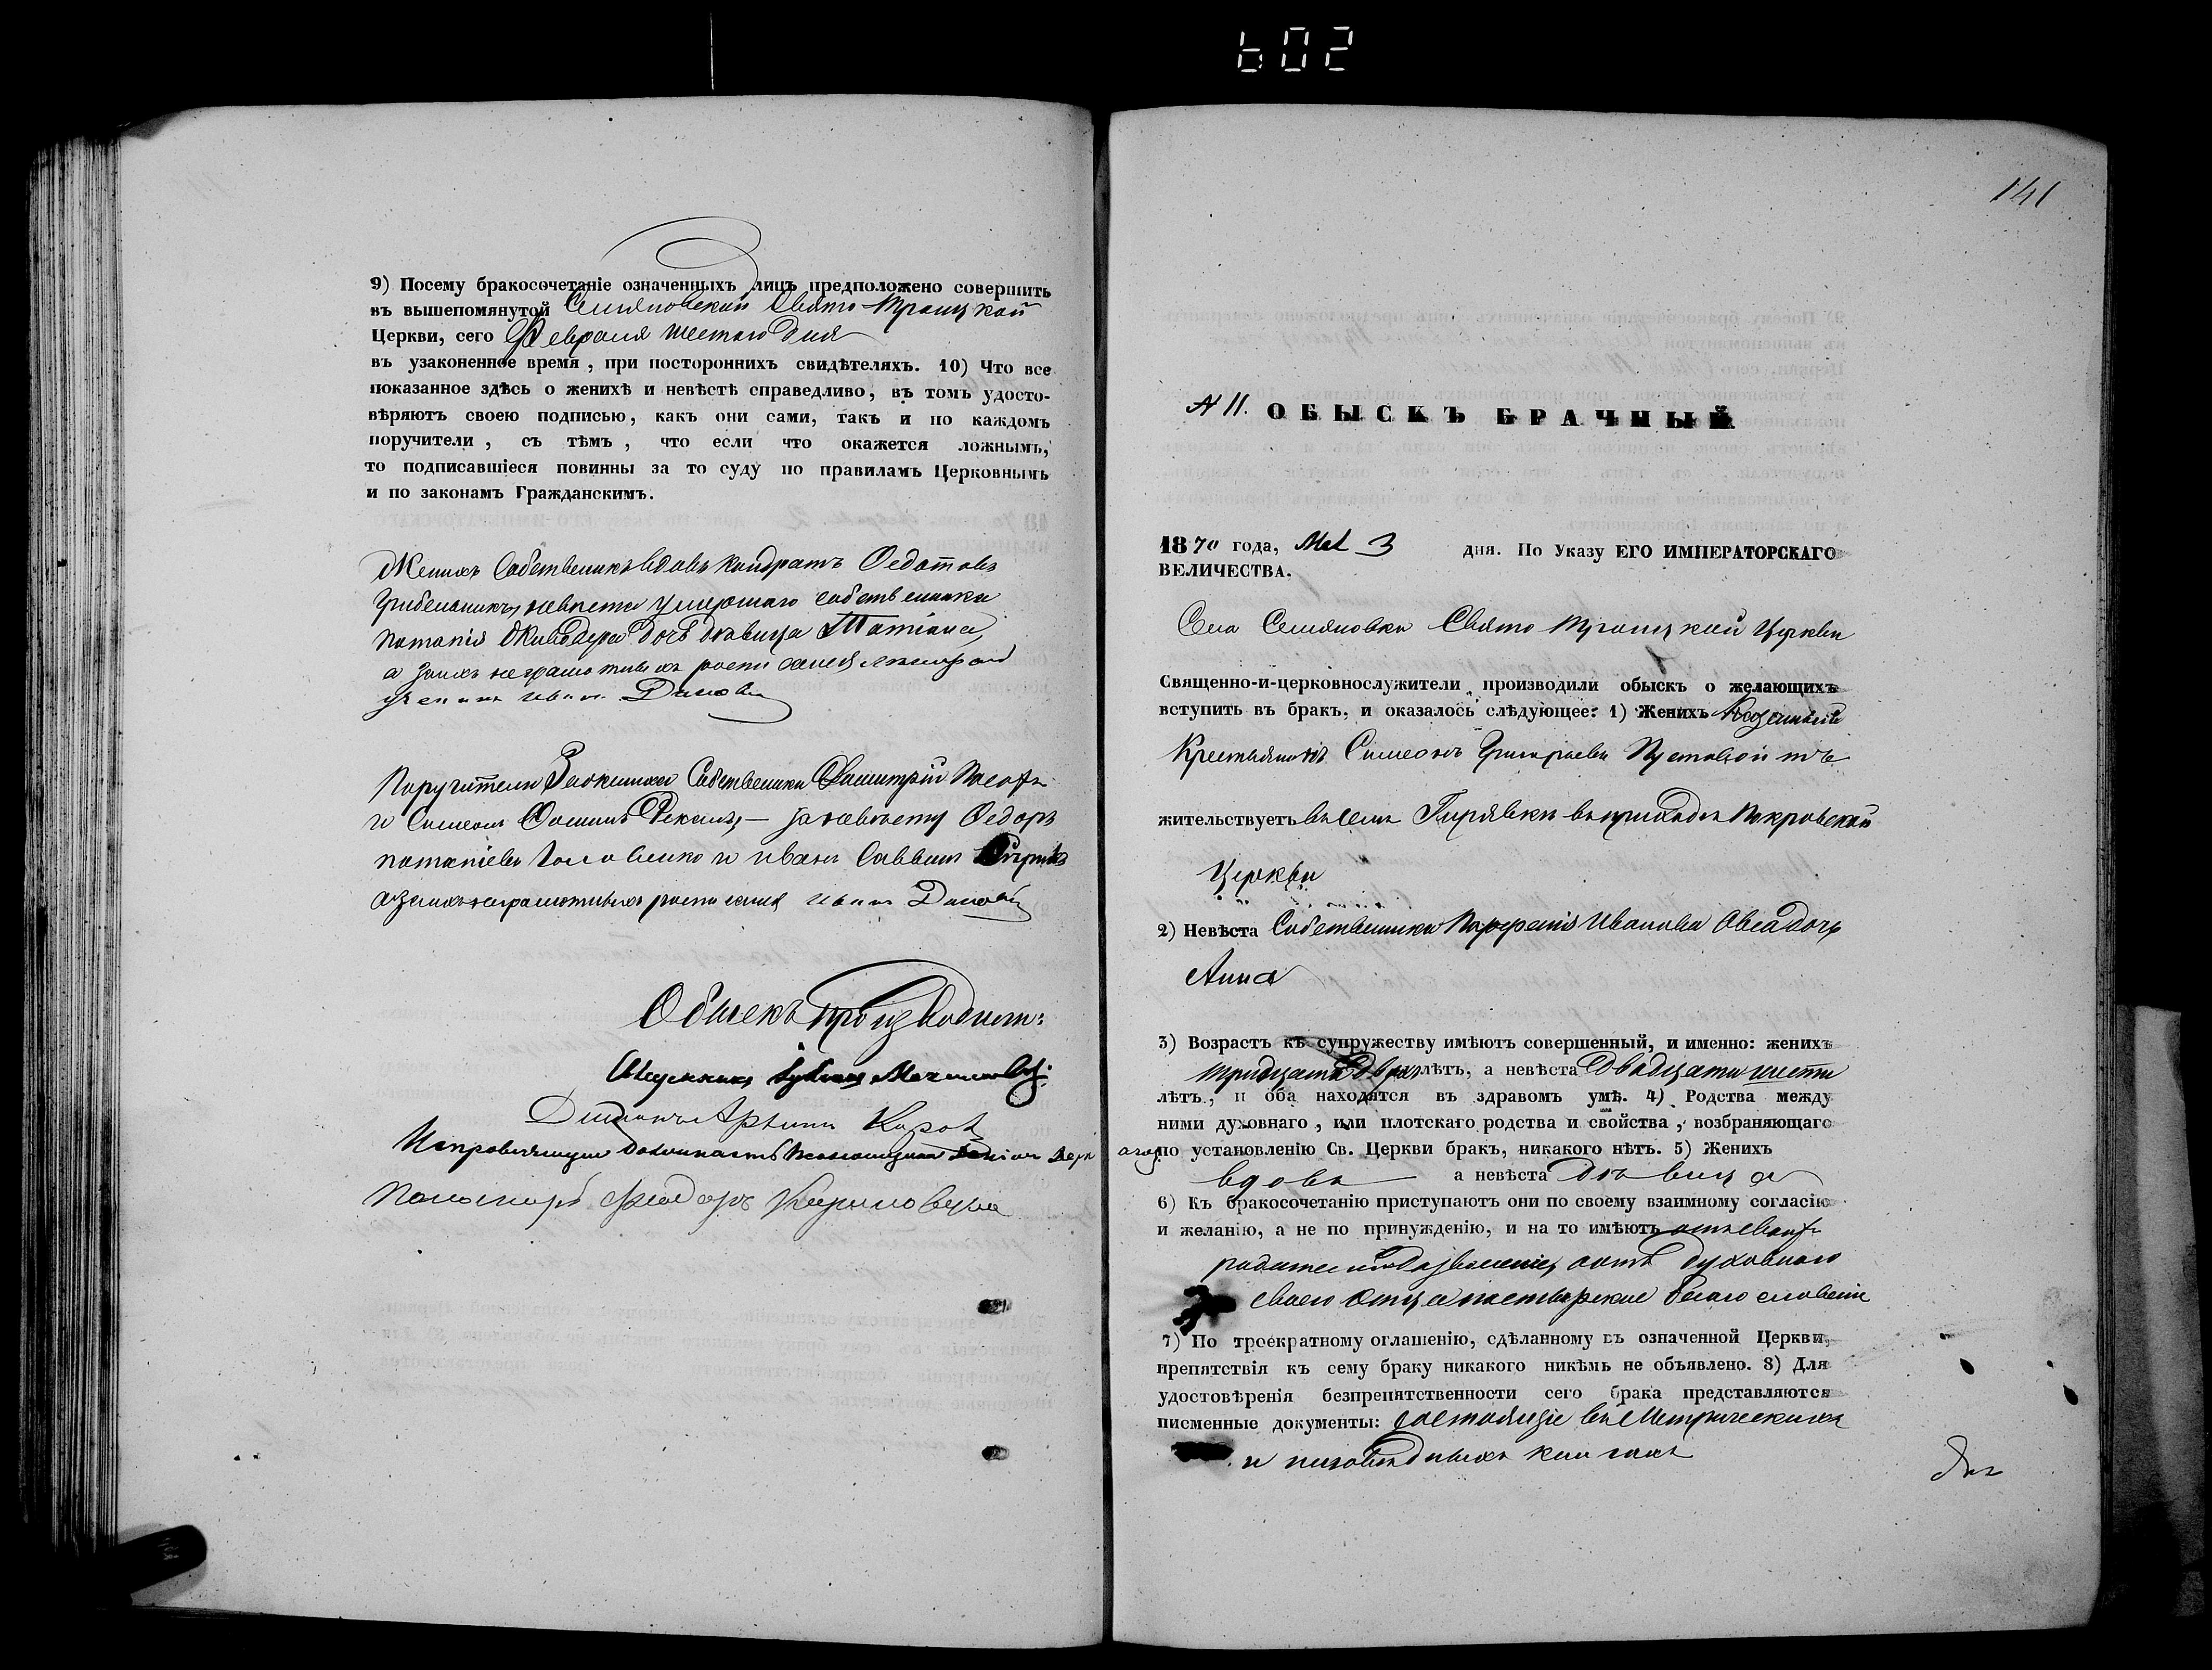 602
9) Посему бракосочетаніе означенныхъ лицъ предположено совершить
въ вышепомянутой Семяновской Свято-Троицкой
Церкви, сего Февраля шестаго дня
въ узаконенное время, при постороннихъ свидѣтеляхъ. 10) Что все
показанное здѣсь о женихѣ и невѣстѣ справедливо, въ томъ удосто-
вѣряютъ своею подписью, какъ они сами, такъ и по каждомъ
поручители, съ тѣмъ, что если что окажется ложнымъ,
то подписавшіеся повинны за то суду по правиламъ Церковнымъ
и по законамъ Гражданскимъ.
Женихъ Собственникъ вдовъ Кондратъ Федотовъ
невѣста умершаго собственника
Потапія дочь дѣвица Татіана,
а за нихъ неграмотныхъ
Иванъ
Поручители Зажениха Собственники Дмитрій
и Симеонъ Фоминъ — за невѣсту Федоръ
Потапіевъ и Иванъ Саввинъ
а за нихъ неграмотныхъ Иванъ
Обыскъ производили:
Священникъ
Діаконъ
Исправляющій должность Псаломщика
Пономарь Федоръ
141
N 11. ОБЫСКЪ БРАЧНЫЙ
1870 года, Мая 3 дня. По Указу ЕГО ИМПЕРАТОРСКАГО
ВЕЛИЧЕСТВА.
Села Семяновки Свято Троицкой Церкви
Священно-и-церковнослужители производили обыскъ о желающихъ
вступить въ бракъ, и оказалось слѣдующее: 1) Женихъ Козенный
Крестьянинъ Симеонъ Григорьевъ Пустовойтъ
жительствуетъ въ селѣ Гирявкѣ въ приходѣ Покровской
Церкви
2) Невѣста Собственника Парфенія Иванова Овса дочь
Анна
3) Возрастъ къ супружеству имѣютъ совершенный, и именно: женихъ
тридцати двухъ лѣтъ, а невѣста двадцати шести
лѣтъ, и оба находятся въ здравомъ умѣ. 4) Родства между
ними духовнаго, или плотскаго родства и свойства, возбраняющаго
по установленію Св. Церкви бракъ, никакого нѣтъ. 5) Женихъ
вдовъ а невѣста дѣвица
6) Къ бракосочетанію приступаютъ они по своему взаимному согласію
и желанію, а не по принужденію, и на то имѣютъ отъ своихъ
родителей дозволеніе, а отъ духовнаго
своего отца пастырское благословеніе
7) По троекратному оглашенію, сдѣланному въ означенной Церкви,
препятствія къ сему браку никакого никѣмъ не объявлено. 8) Для
удостовѣренія безпрепятственности сего брака представляются
писменные документы: состоящіе въ Метрическихъ
и исповѣдныхъ книгахъ